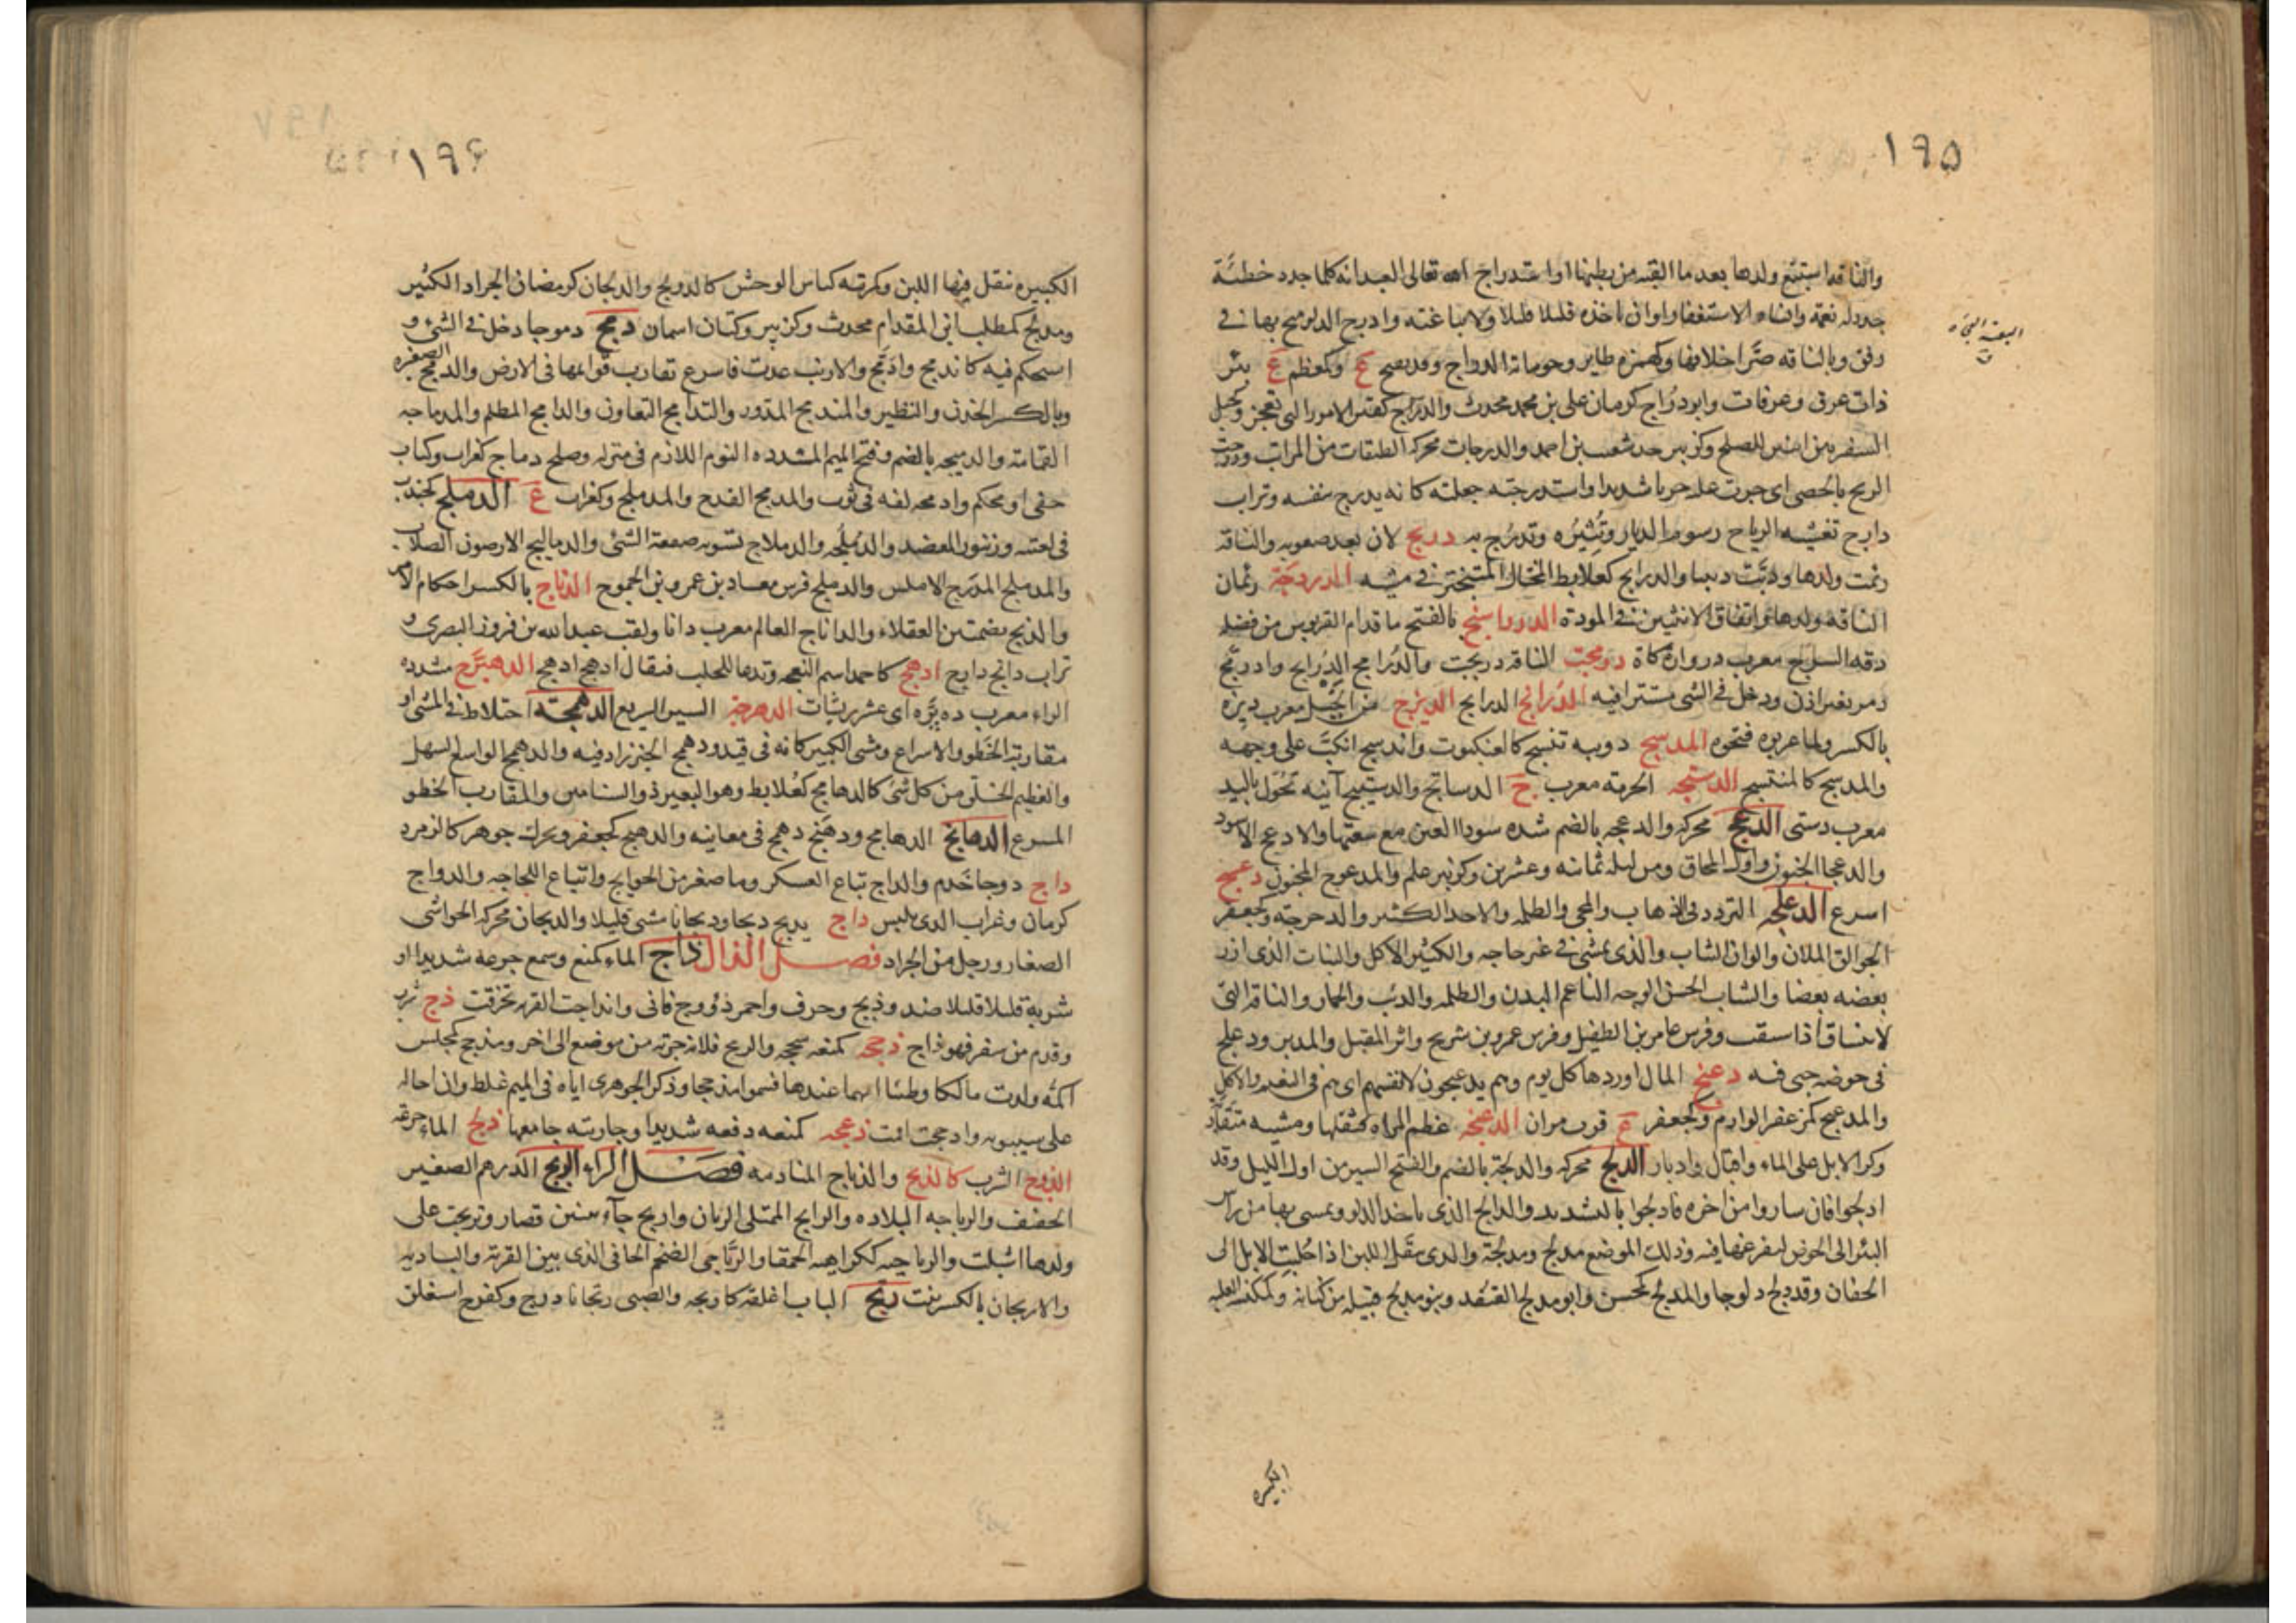 ١٩٥
والناقة استتبع ولدها بعد ما القته من بطنها او استدراج الله تعالى العبد انه كلما جدد خطئة
جدد له نعمة وانساه الاستغفار او ان ياخذه قليلا قليلا ولا يباغته وادرج الدلو متح بها في
رفق وبالناقة صر اخلافها وكهمزه طاير وحومانة الدراج وقد يضم ع وكمعظم ع بين
ذات عرق وعرفات وابو دراج كرمان على بن محمد محدث والدرج كقبر الامور التي تعجز وكجبل
السفير بين اثنين للصلح وكزبير جد شعيب بن احمد والدرجات محركة الطبقات من المراتب ودرجت
الريح بالحصى اى جرت عليه جريا شديدا واستدرجته جعلته كانه يدرج بنفسه وتراب
دارج تغشيه الرياح رسوم الديار وتثيره وتدرج به دربج لان بعد صعوبه والناقة
رئمت ولدها ودبت دبيبا والدرابج كعلابط المختال المتبختر في مشيه الدردجة رئمان
الناقة ولدها او اتفاق الاثنين في المودة الدرواسنج بالفتح ما قدام القربوس من فضله
دفة السرج معرب دروازه كاه درمجت الناقة دربجت والدرامج الدرابج وادرمج
دمر بغير اذن ودخل في الشى مستترا فيه الدرانج الدرابج الديزج من الخيل معرب ديزه
بالكسر ولما عربوه فتحوه المدسج دويبه تنسج كالعنكبوت واندسج انكب على وجهه
والمدسج كالمنتسج الدستجه الحزمه معرب ج الدساتج والدستيج آنيه تحول باليد
معرب دستى الدعج محركه والدعجه بالضم شده سواد العين مع سعتها والادعج الاسود
والدعجا الجنون واول المحاق ومن ليله ثمانيه وعشرين وكزبير علم والمدعوج المجنون دعسج
اسرع الدعلجه التردد في الذهاب والمجى والظلمه والاخذ الكثير والدحرجة وكجعفر
الجوالق الملان والوان الثياب والذى يمشى في غير حاجه والكثير الاكل والنبات الذى ازر
بعضه بعضا والشاب الحسن الوجه الناعم البدن والظلمه والذئب والحمار والناقة التى
لا تنساق اذا سقت وفرس عامر بن الطفيل وفرس عمرو بن شريح واثر المقبل والمدبر ودعلج
فى حوضه جبى فيه دغبج المال اوردها كل يوم وهم يدغبجون لانفسهم اى هم فى النعيم والاكل
والمدغبج كمزعفر الوارم وكجعفر ع قرب مران الدغنجه عظم المراة كثقلها ومشيه متقارب
وكر الابل على الماء واقبال وادبار الدلج محركه والدلجة بالضم والفتح السير من اول الليل وقد
ادلجوا فان ساروا من اخره فادلجوا بالتشديد والدالج الذى ياخذ الدلو ويمشى بها من راس
البئر الى الحوض ليفرغها فيه وذلك الموضع مدلج ومدلجة والذى ينقل اللبن اذا حلبت الابل الى
الجفان وقد دلج دلوجا والمدلج كمحسن وابو مدلج القنفذ وبنو مدلج قبيله من كنانة وكمكنسه العلبه
الكبيره
الكبيره ينقل فيها اللبن وكمرتبه كناس الوحش كالدولج والدلجان كرمضان الجراد الكثير
١٩۶
ومدلج كمطلب ابن المقدام محدث وكزبير وكتان اسمان دمج دموجا دخل في الشئ و
استحكم فيه كاندمج وادمج والارنب عدت فاسرع تقارب قوائمها فى الارض والدمج الضفيره
وبالكسر الخدن والنظير والمندمج المدور والتدامج التعاون والدامج المظلم والمدماجه
العمامة والدميجه بالضم وفتح الميم المشدده النوم اللازم فى منزله وصلح دماج كغراب وكتاب
خفى او محكم وادمجه لفه في ثوب والمدمج القدح والمدملج وكغراب ع الدملج كجندب
فى لغتيه وزنبور المعضد والدملجه والدملاج تسويه صنعة الشئ والدماليج الارضون الصلاب
والمدملج المدرج الاملس والدملج فرس معاد بن عمرو بن الجموح الدناج بالكسر احكام الامر
والدنج بضمتين العقلاء والداناج العالم معرب دانا ولقب عبدالله بن فروز البصرى و
تراب دانج دارج ادهج كاحمد اسم النعجه وتدعا للحلب فيقال ادهج ادهج الدهبرج مشدده
الراء معرب ده پره اى عشر ريشات الدهرجة السير السريع الدهمجة اختلاط في المشى او
مقاربة الخطو والاسراع ومشى الكبير كانه فى قيد ودهمج الخبر زاد فيه والدهمج الواسع السهل
والعظيم الخلق من كل شئ كالدهامج كعلابط وهو البعير ذو السنامين والمقارب الخطو
المسرع الدهانج الدهامج ودهنج دهمج فى معانيه والدهنج كجعفر ويحرك جوهر كالزمرد
داج دوجا خدم والداج تباع العسكر وما صغر من الحوايج واتباع للحاجه والدواج
كرمان وغراب الذى يلبس داج يديج ديجا وديجانا مشى قليلا والديجان محركه الحواشى
الصغار ورجل من الجراد فصل الذال ذاج الماء كمنع وسمع جرعه شديدا او
شربه قليلا قليلا ضد وذبح وخرق واحمر ذؤوج قانى وانذاجت القربه تخرقت ذج شرب
وقدم من سفر فهو ذاج ذحجه كمنعه سحجه والريح فلانا جرته من موضع الى اخر ومذحج كمجلس
اكمة ولدت مالكا وطيئا امهما عندها فسموا مذحجا وذكر الجوهرى اياه فى الميم غلط وان احاله
على سيبويه واذحجت اقامت ذعجه كمنعه دفعه شديدا وجاريته جامعها ذلج الماء جرعه
الذوج الشرب كالذيج والذياج المنادمه فصل الراء الربج الدرهم الصغير
الخفيف والرباجه البلاده والرابج الممتلى الريان واربج جآء ببنين قصار وتربجت على
ولدها اشبلت والرباجيه ككراهيه الحمقا والرباجى الضخم الجافى الذى بين القرية والباديه
والاربجان بالكسر نبت رتج الباب اغلقه كارتجه والصبى رتجانا درج وكفرح استغلق